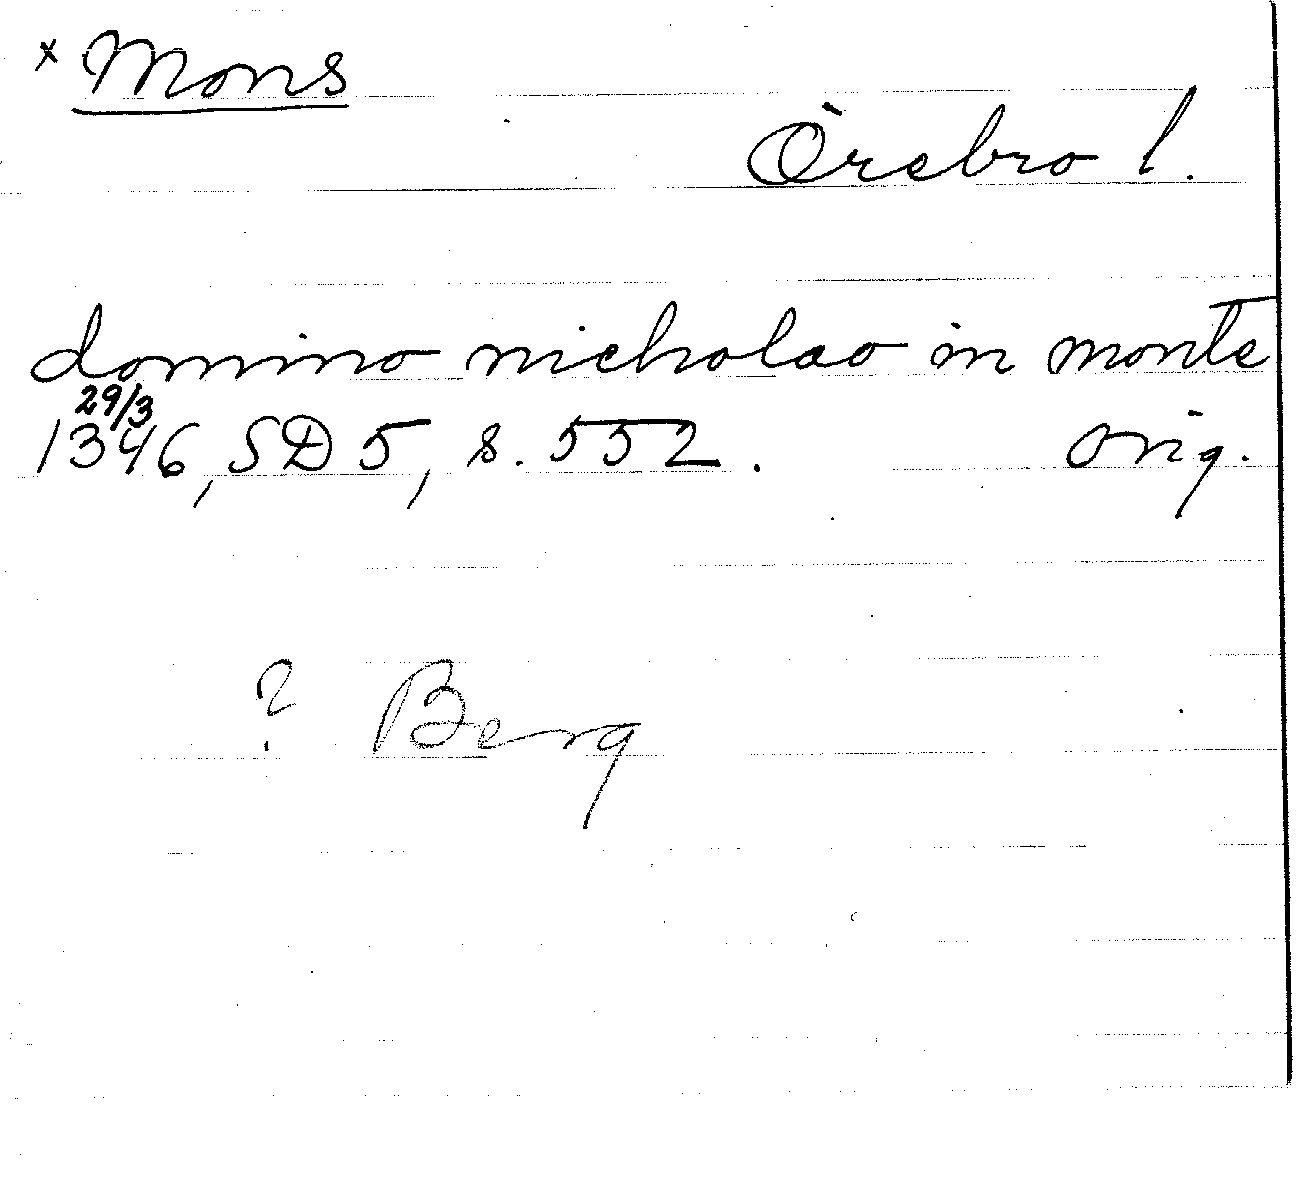 x Mons
Örebro l.
domino nicholao in monte
29/3
1346, SD 5, s. 552. Orig.
? Berg